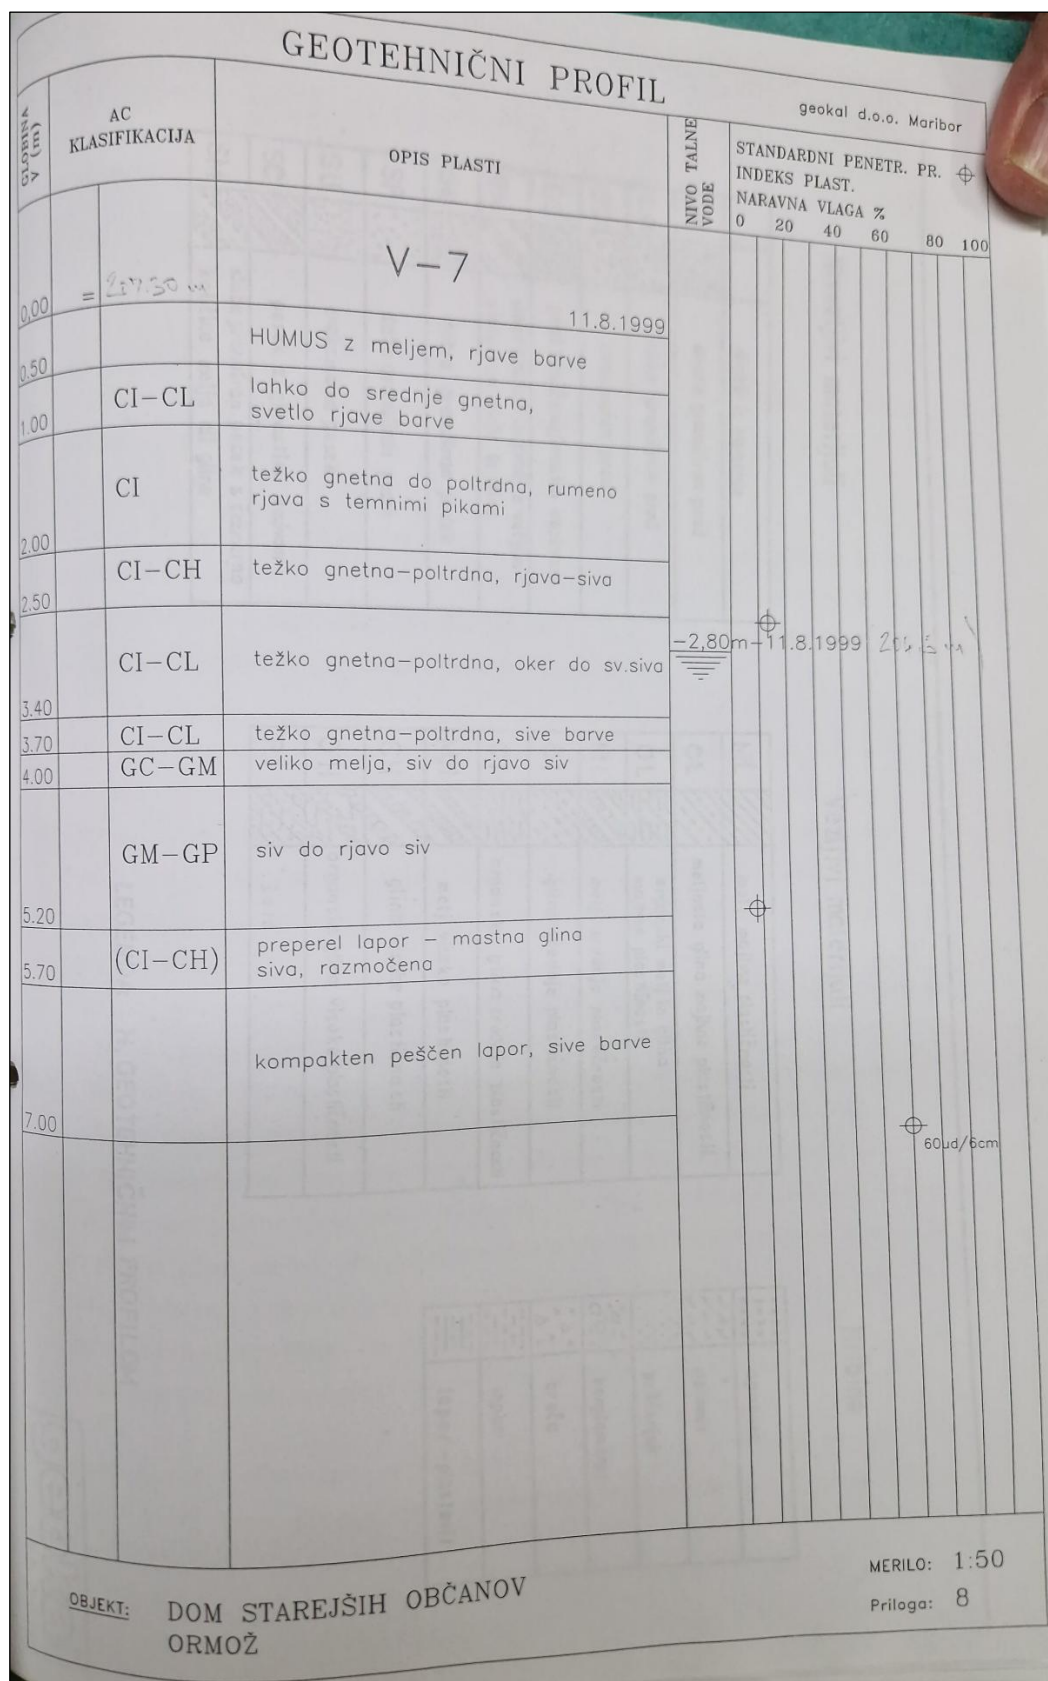 GEOTEHNIČNI PROFIL
geokal d.o.o. Maribor
GLOBINA V (m)
AC
KLASIFIKACIJA
OPIS PLASTI
NIVO TALNE
VODE
STANDARDNI PENETR. PR.
INDEKS PLAST.
NARAVNA VLAGA %
0 20 40 60 80 100
V-7
0,00 =
11.8.1999
HUMUS z meljem, rjave barve
0.50
CI-CL
lahko do srednje gnetna,
svetlo rjave barve
1.00
CI
težko gnetna do poltrdna, rumeno
rjava s temnimi pikami
2.00
CI-CH
težko gnetna-poltrdna, rjava-siva
2.50
-2,80m-11.8.1999
CI-CL
težko gnetna-poltrdna, oker do sv.siva
3.40
CI-CL
težko gnetna-poltrdna, sive barve
3.70
GC-GM
veliko melja, siv do rjavo siv
4.00
GM-GP
siv do rjavo siv
5.20
(CI-CH)
preperel lapor - mastna glina
siva, razmočena
5.70
kompakten peščen lapor, sive barve
7.00
60ud/6cm
MERILO: 1:50
Priloga: 8
OBJEKT: DOM STAREJŠIH OBČANOV
ORMOŽ